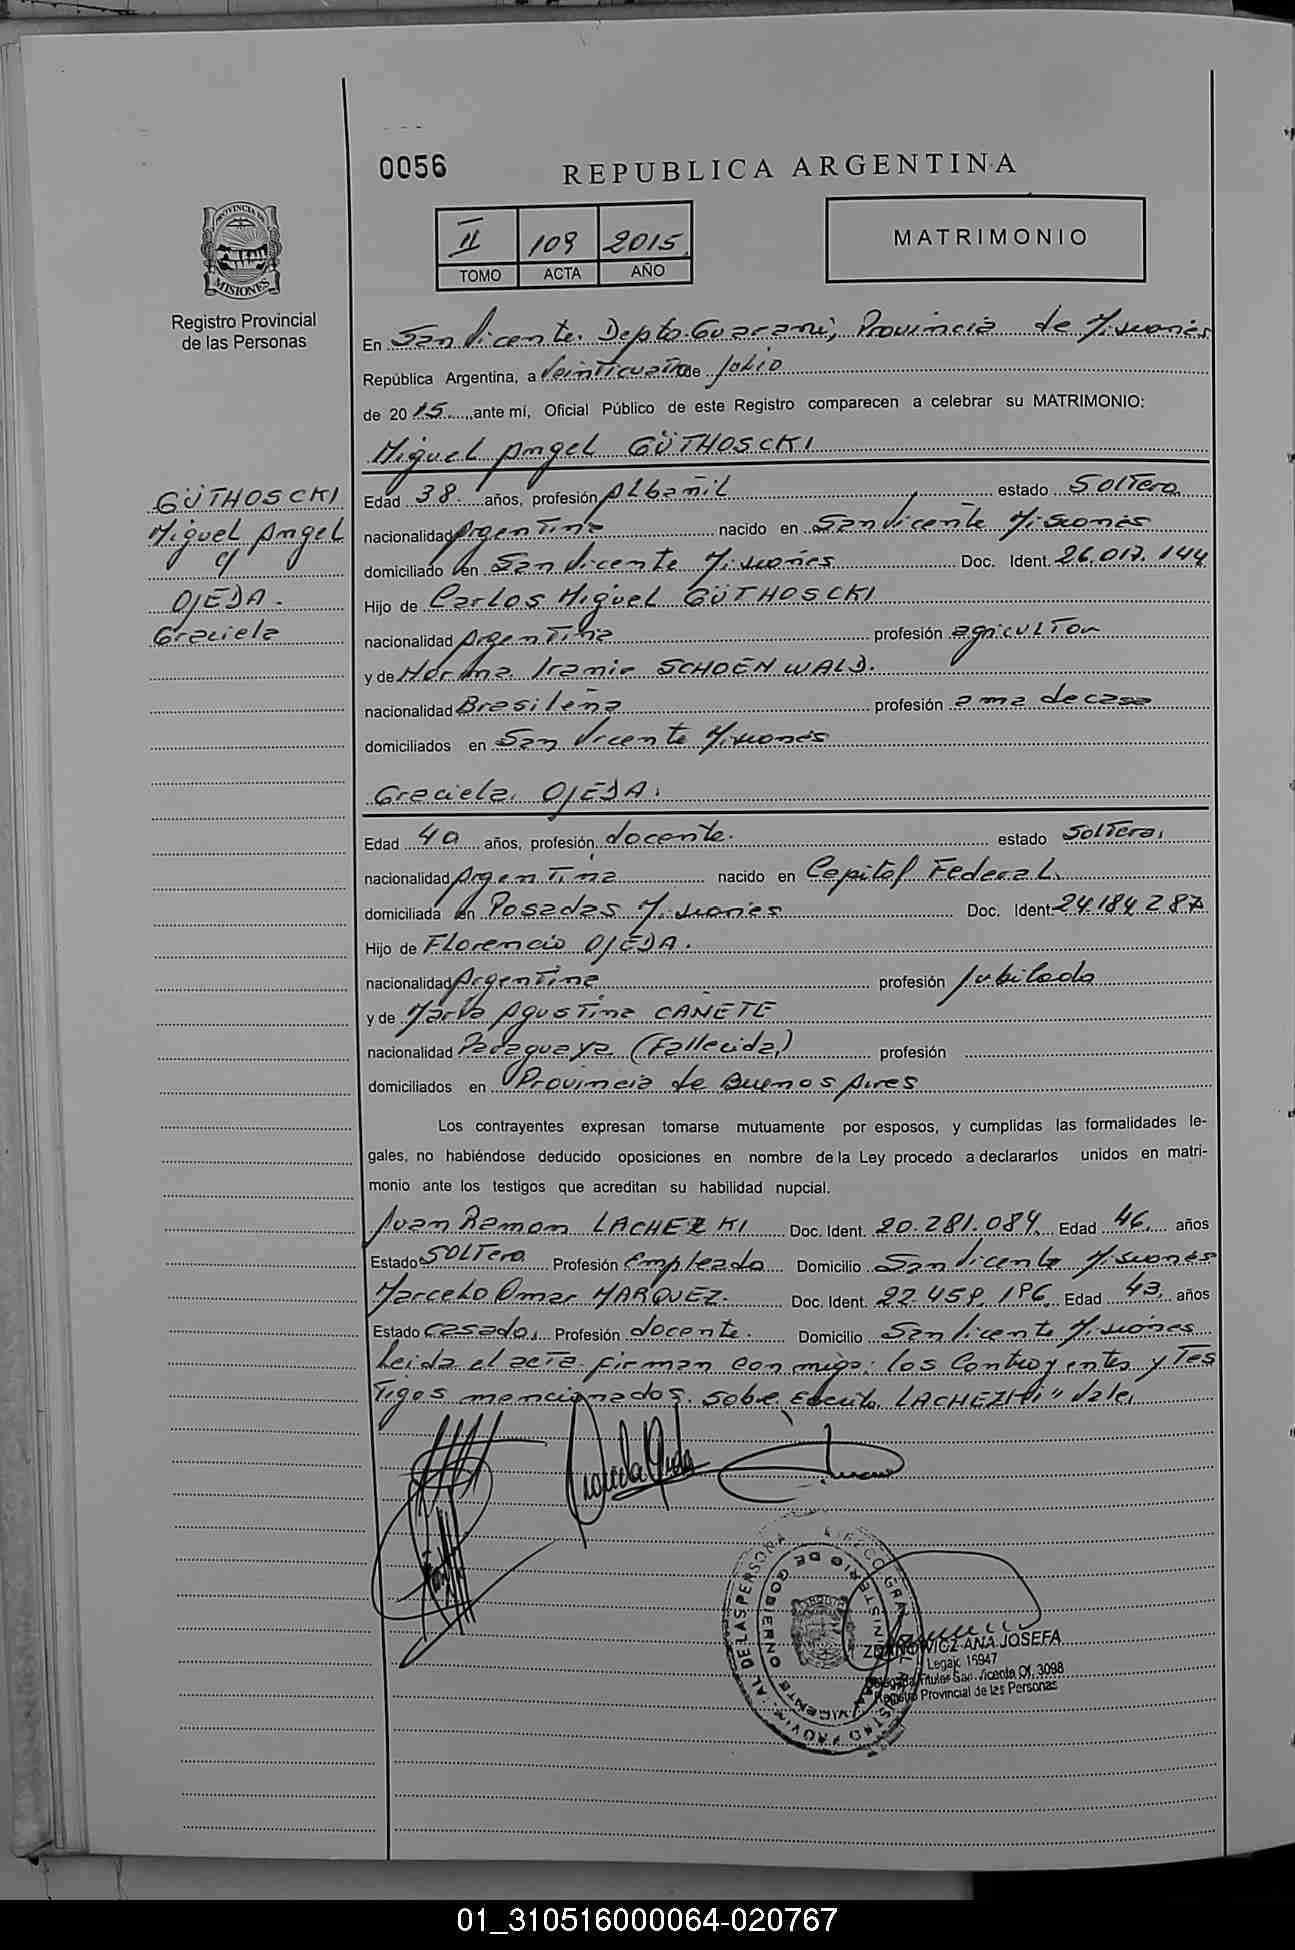 0056
REPUBLICA ARGENTINA
II 109 2015
TOMO ACTA AÑO
MATRIMONIO
PROVINCIA DE
MISIONES
Registro Provincial
de las Personas
En San Vicente. Depto. Guarani, Provincia de Misiones
República Argentina, a veinticuatro de Julio
de 2015 ante mí, Oficial Público de este Registro comparecen a celebrar su MATRIMONIO:
Miguel Angel GÜTHOSCKI
GÜTHOSCKI
Miguel Angel
c/
OJEDA.
Graciela
Edad 38. años, profesión Albañil estado Soltero
nacionalidad Argentina nacido en San Vicente Misiones
domiciliado en San Vicente Misiones Doc. Ident. 26.017.144
Hijo de Carlos Miguel GÜTHOSCKI
nacionalidad Argentina profesión agricultor
y de Norma Iramir SCHOENWALD.
nacionalidad Brasileña profesión ama de casa
domiciliados en San Vicente Misiones
Graciela OJEDA.
Edad 40 años, profesión docente. estado Soltera.
nacionalidad Argentina nacido en Capital Federal.
domiciliada en Posadas Misiones Doc. Ident. 24.184.287
Hijo de Florencio OJEDA.
nacionalidad Argentina profesión Jubilado
y de María Agustina CAÑETE
nacionalidad Paraguaya (Fallecida) profesión
domiciliados en Provincia de Buenos Aires
Los contrayentes expresan tomarse mutuamente por esposos, y cumplidas las formalidades le-
gales, no habiéndose deducido oposiciones en nombre de la Ley procedo a declararlos unidos en matri-
monio ante los testigos que acreditan su habilidad nupcial.
Juan Ramon LACHEZKI Doc. Ident. 20.281.084. Edad 46 años
Estado Soltero Profesión Empleado Domicilio San Vicente Misiones
Marcelo Omar MARQUEZ. Doc. Ident. 22.459.196. Edad 43 años
Estado casado. Profesión docente. Domicilio San Vicente Misiones
Leida el acta firman conmigo: los Contrayentes y Tes
tigos mencionados. Sobre Escrito LACHEZKI" Vale.
Graciela Ojeda
MINISTERIO DE GOBIERNO
SAN VICENTE
ZDANOWICZ ANA JOSEFA
Legajo 15947
Delegada Titular San Vicente Of. 3098
Registro Provincial de las Personas
01_310516000064-020767